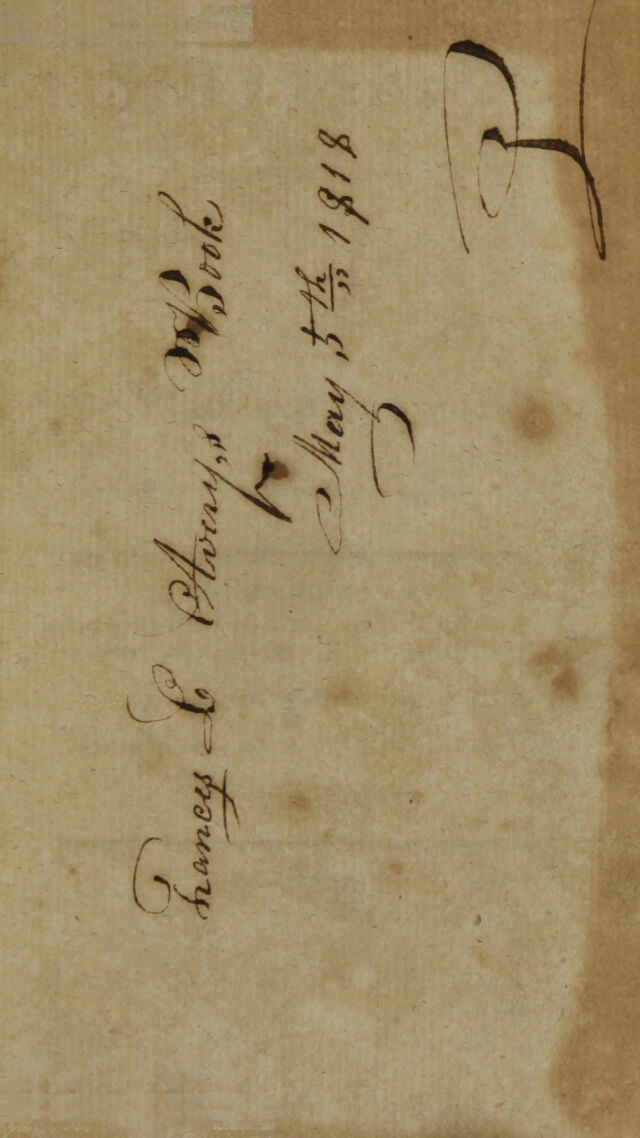 Francis L Avery,s Book
May 5th 1818